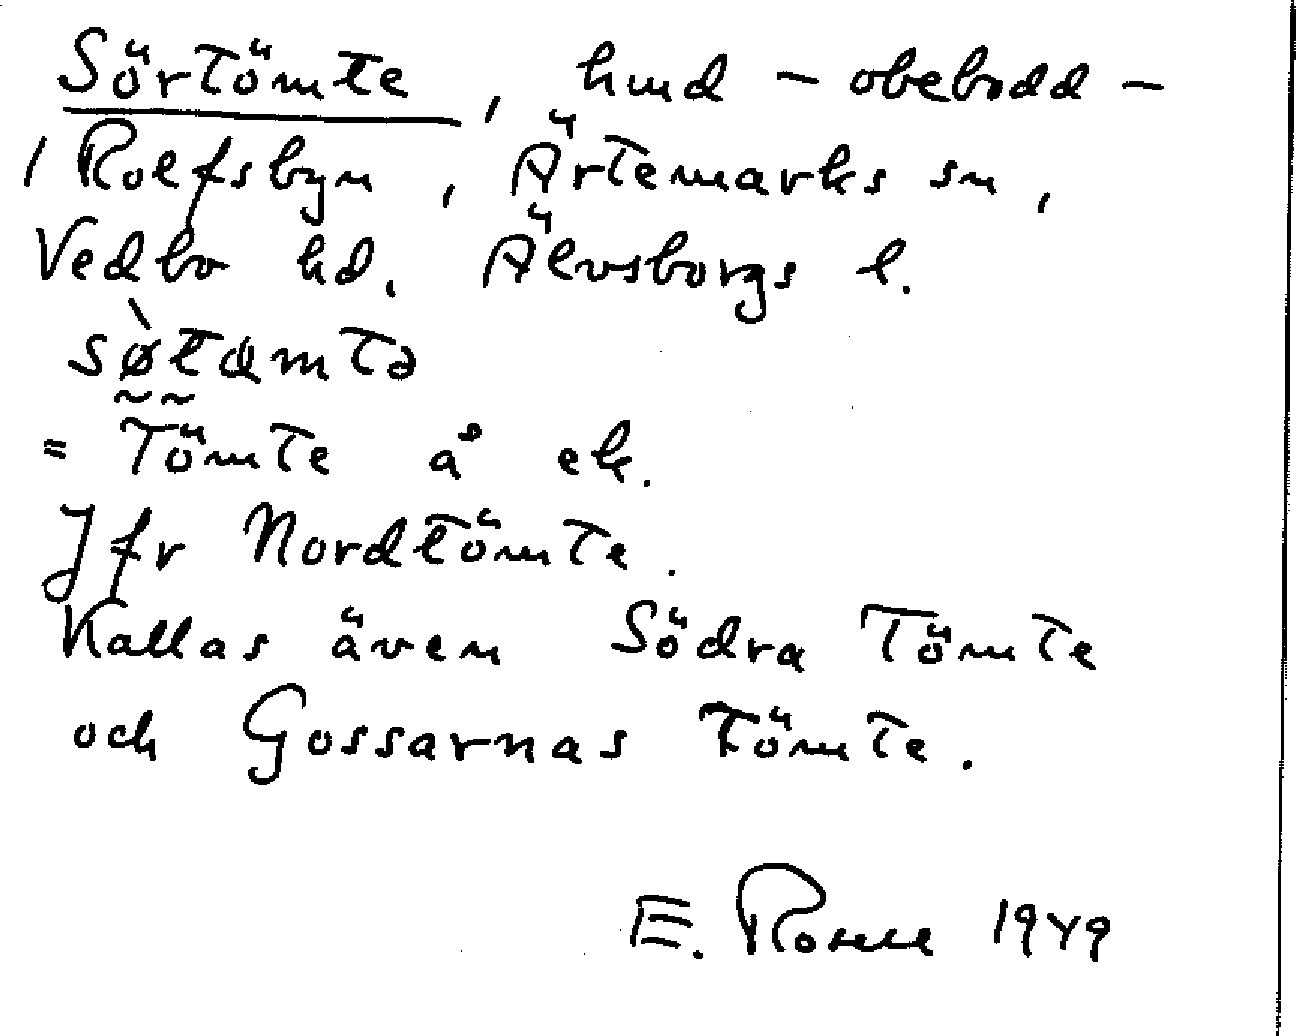 Sörtömte, hmd – obebodd –
i Rolfsbyn, Ärtemarks sn,
Vedbo hd. Älvsborgs l.
sø̀tamtə
= Tömte å ek.
Jfr Nordtömte.
Kallas även Södra Tömte
och Gossarnas Tömte.
E. 1949